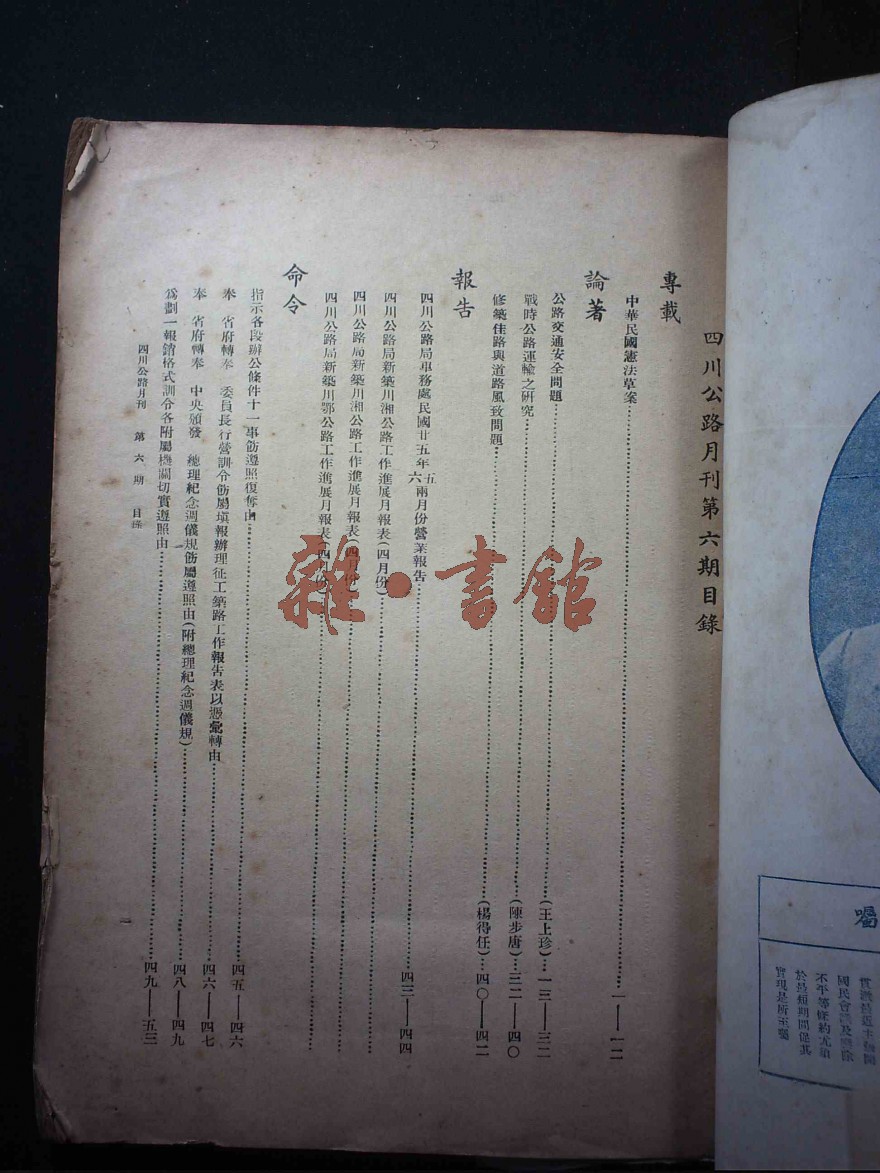 四川公路月刊第六期目錄
專載
中華民國憲法草案……一——一二
論著
公路交通安全問題……(王上珍)…一三——三二
戰時公路運輸之研究……(陳步唐)…三二——四〇
修築佳路與道路風致問題……(楊得任)…四〇——四二
報告
四川公路局車務處民國廿五年五六兩月份營業報告……四三——四四
四川公路局新築川湘公路工作進展月報表(四月份)……
四川公路局新築川湘公路工作進展月報表(四月份)……
四川公路局新築川鄂公路工作進展月報表(四月份)……
命令
指示各段辦公條件十一事飭遵照復奪由……四五——四六
奉 省府轉奉 委員長行營訓令飭屬填報辦理征工築路工作報告表以憑彙轉由……四六——四七
奉 省府轉奉 中央頒發 總理紀念週儀規飭屬遵照由(附總理紀念週儀規)……四八——四九
爲劃一報銷格式訓令各附屬機關切實遵照由……四九——五三
四川公路月刊 第六期 目錄
一
雜·書館
囑
國民會議及廢除
不平等條約尤須
於最短期間促其
實現是所至囑